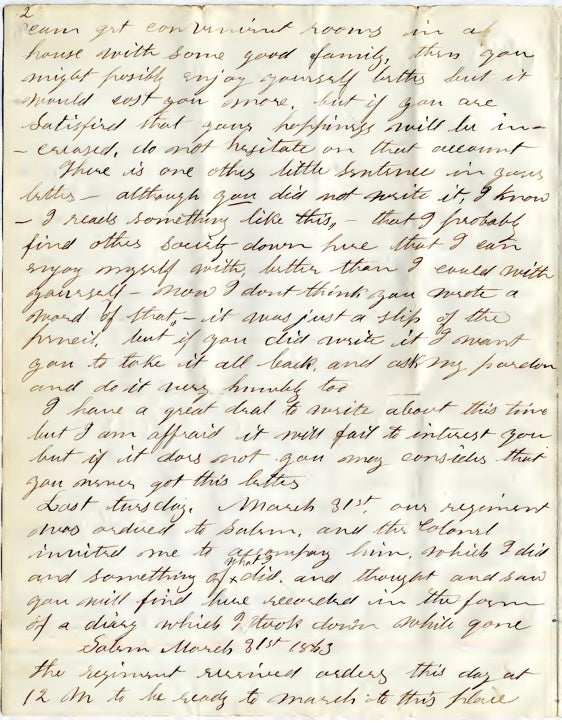 2
can get convenient rooms in a
house with some good family, then you
might posibly enjoy yourself better but it
would cost you more, but if you are
satisfied that your happiness will be in-
-creased, do not hesitate on that account
There is one other little sentence in your
letter - although you did not write it, I know
- I read something like this, - that I probably
find other society down here that I can
enjoy myself with, better than I could with
yourself - now I dont think you wrote a
word of that" - it was just a slip of the
pencil, but if you did write it I want
you to take it all back, and ask my pardon
and do it very humbly too
I have a great deal to write about this time
but I am affraid it will fail to interest you
but if it does not you may consider that
you never got this letter
Last tuesday, March 31st, our regiment
was ordered to Salem, and the Colonel
invited me to accompany him, which I did
and something of what I did, and thought and saw
you will find here recorded in the form
of a diary which I took down while gone
Salem March 31st 1863
the regiment received orders this day at
12 M to be ready to march to this place